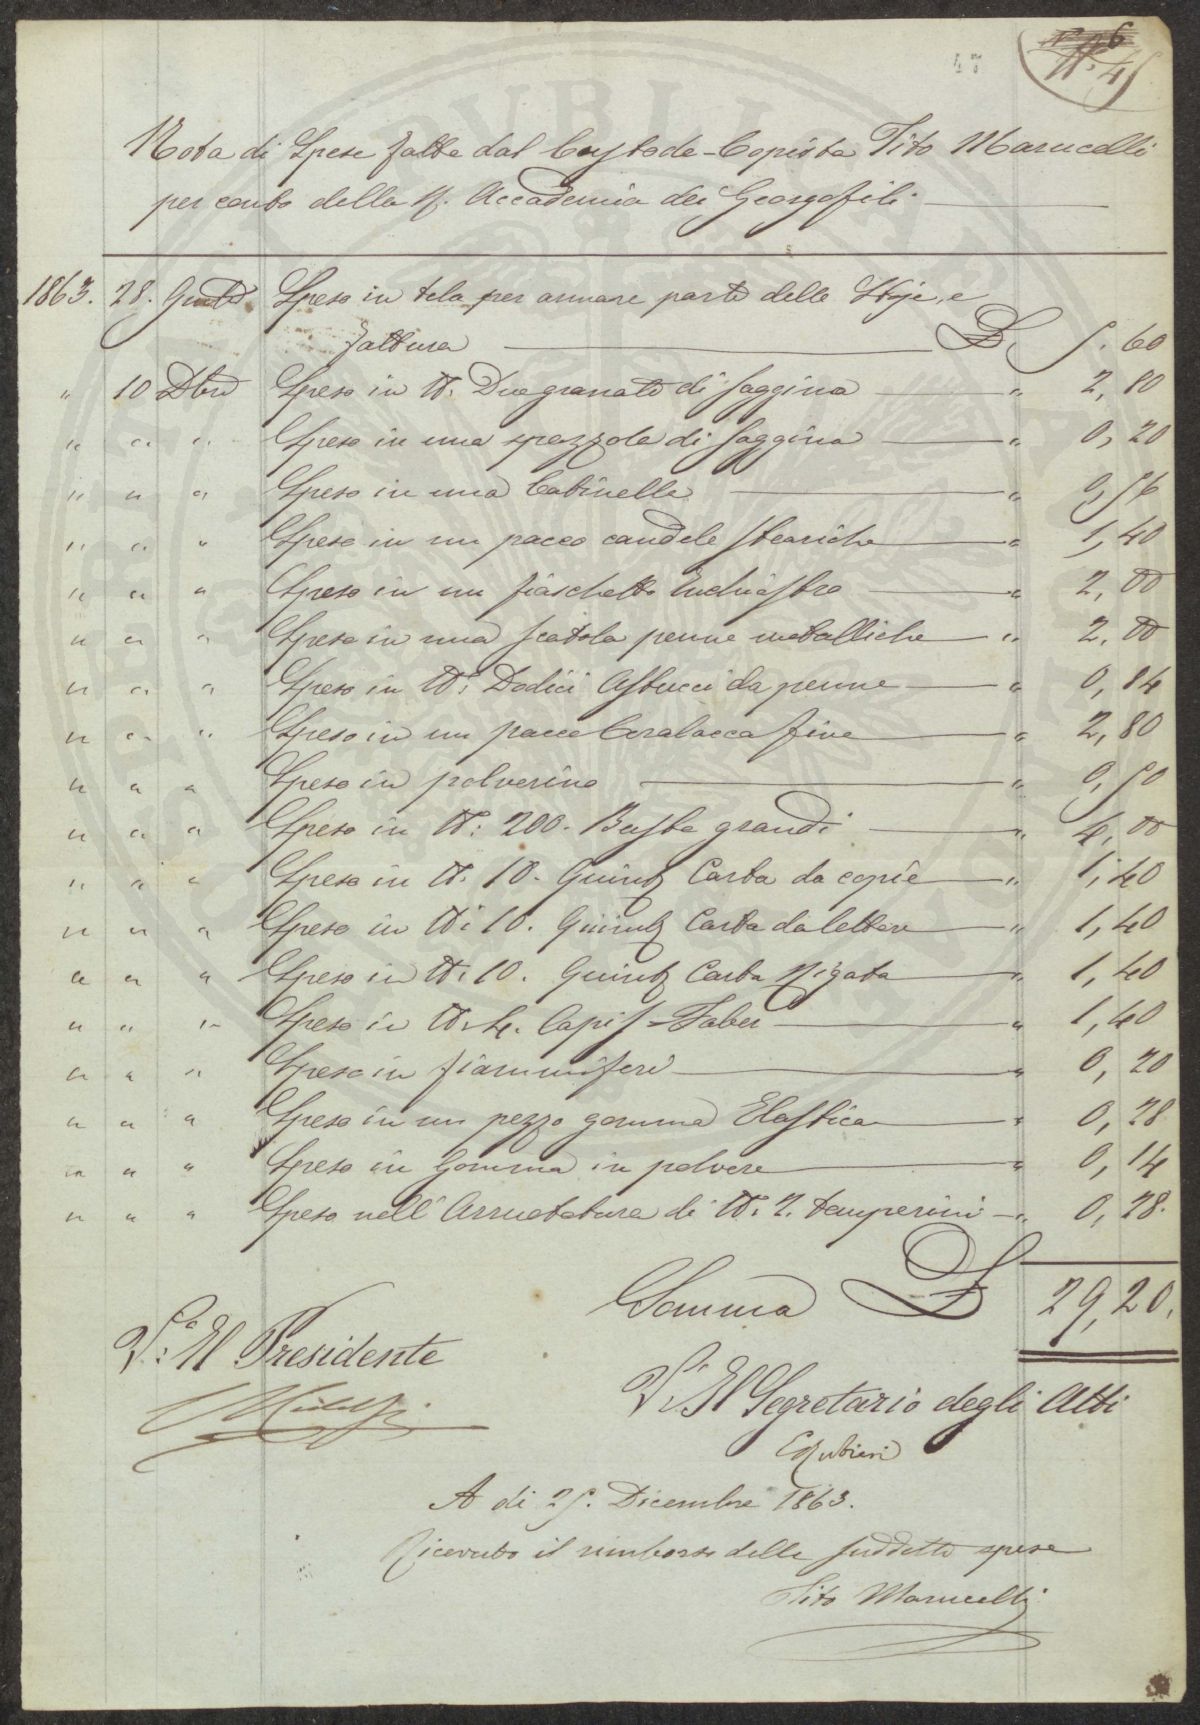 N.° 45
47
Nota di Spese fatte dal Custode-Copista Tito Marucelli
per conto della R. Accademia dei Georgofili.
1863. 28. Spese in tela per armare parte delle Stoje, e
fattura £. 5. 60
" 10 Dbre Speso in N.° Due granate di saggina " 2, 80
" " " Speso in una spazzola di saggina " 0, 20
" " " Speso in una Catinella " 0, 56
" " " Speso in un pacco candele steariche " 1, 40
" " " Speso in un fiaschetto inchiostro " 2, 00
" " " Speso in una scatola penne metalliche " 2, 00
" " " Speso in N: Dodici Astucci da penne " 0, 84
" " " Speso in un pacco Ceralacca fine " 2, 80
" " " Speso in polverino " 0, 50
" " " Speso in N: 200. Buste grandi " 4, 00
" " " Speso in N. 10. Quint. Carta da copie " 1, 40
" " " Speso in N: 10. Quint. Carta da lettere " 1, 40
" " " Speso in N. 10. Quint. Carta Rigata " 1, 40
" " " Speso in N. 4. Lapis-Faber " 1, 40
" " " Speso in fiammiferi " 0, 20
" " " Speso in un pezzo gomma Elastica " 0, 28
" " " Speso in Gomma in polvere " 0, 14
" " " Speso nell'Arruotatura di N. 2. temperini " 0, 28.
Somma £ 29, 20.
V.° Il Presidente
V. Il Segretario degli Atti
E Rubieri
A di 25. Dicembre 1863.
Ricevuto il rimborso delle suddette spese
Tito Marucelli